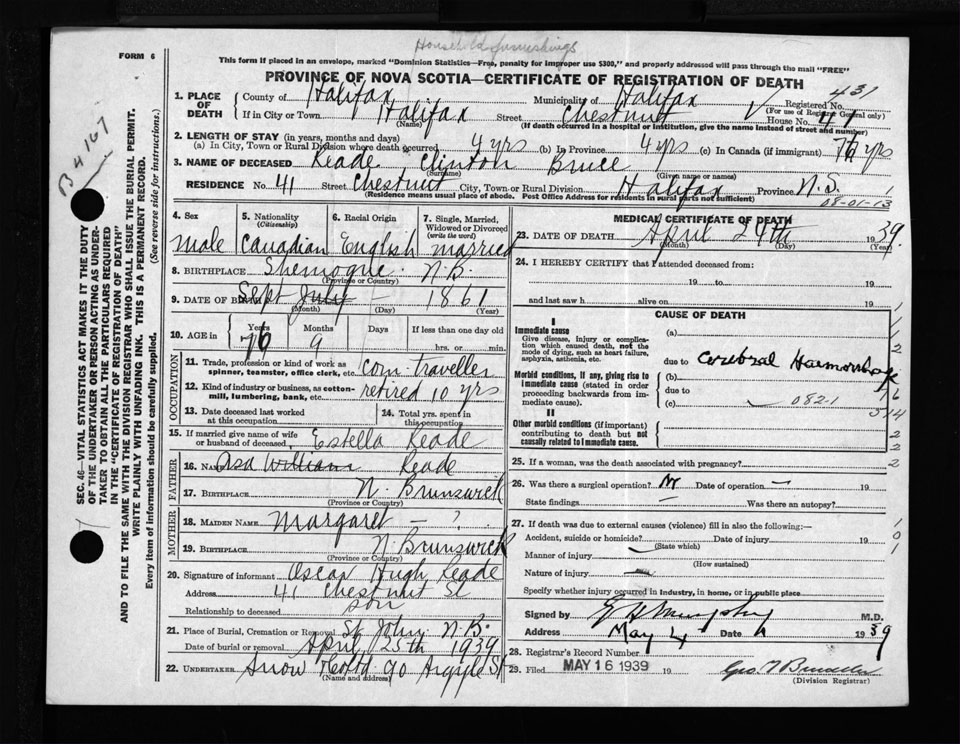 Household furnishings
FORM 6
This form if placed in an envelope, marked "Dominion Statistics—Free, penalty for improper use $300," and properly addressed will pass through the mail "FREE"
PROVINCE OF NOVA SCOTIA—CERTIFICATE OF REGISTRATION OF DEATH
1. PLACE OF DEATH County of Halifax Municipality of Halifax Registered No. 431
(For use of Registrar General only)
If in City or Town Halifax Street Chestnut House No. 41
(Name) (If death occurred in a hospital or institution, give the name instead of street and number)
2. LENGTH OF STAY (in years, months and days)
(a) In City, Town or Rural Division where death occurred 4 yrs (b) In Province 4 yrs (c) In Canada (if immigrant) 76 yrs
3. NAME OF DECEASED Keade Clinton Bruce
(Surname) (Given name or names)
RESIDENCE No. 41 Street Chestnut City, Town or Rural Division Halifax Province N.S.
(Residence means usual place of abode. Post Office Address for residents in rural parts not sufficient)
08-01-13
4. Sex 5. Nationality (Citizenship) 6. Racial Origin 7. Single, Married, Widowed or Divorced (write the word)
male Canadian English married
8. BIRTHPLACE Shemogue N.B.
(Province or Country)
9. DATE OF BIRTH Sept July — 1861
(Month) (Day) (Year)
10. AGE in Years Months Days If less than one day old
76 9 hrs. or min.
OCCUPATION
11. Trade, profession or kind of work as spinner, teamster, office clerk, etc. com. traveller
12. Kind of industry or business, as cotton-mill, lumbering, bank, etc. retired 10 yrs
13. Date deceased last worked at this occupation 14. Total yrs. spent in this occupation
15. If married give name of wife or husband of deceased Estella Keade
FATHER
16. NAME Asa William Keade
17. BIRTHPLACE N. Brunswick
(Province or Country)
MOTHER
18. MAIDEN NAME Margaret — ?
19. BIRTHPLACE N. Brunswick
(Province or Country)
20. Signature of informant Oscar Hugh Keade
Address 41 Chestnut St
Relationship to deceased son
21. Place of Burial, Cremation or Removal St John N.B.
Date of burial or removal April 25th 1939
22. UNDERTAKER Snow 90 Argyle St
(Name and address)
MEDICAL CERTIFICATE OF DEATH
23. DATE OF DEATH April 24th 1939.
(Month) (Day) (Year)
24. I HEREBY CERTIFY that I attended deceased from:
19 to 19
and last saw h alive on 19
CAUSE OF DEATH
I
Immediate cause
Give disease, injury or complication which caused death, not the mode of dying, such as heart failure, asphyxia, asthenia, etc.
(a)
due to Cerebral Haemorrhage
Morbid conditions, if any, giving rise to immediate cause (stated in order proceeding backwards from immediate cause).
(b)
due to
(c) 082-1
II
Other morbid conditions (if important) contributing to death but not causally related to immediate cause.
1
1
2
1
76
514
2
2
2
25. If a woman, was the death associated with pregnancy?
26. Was there a surgical operation? No Date of operation — 19
State findings — Was there an autopsy?
27. If death was due to external causes (violence) fill in also the following:—
Accident, suicide or homicide? Date of injury 19
(State which)
Manner of injury
(How sustained)
Nature of injury
Specify whether injury occurred in industry, in home, or in public place
1
0
01
Signed by M.D.
Address May 4 Date 1939
28. Registrar's Record Number
29. Filed MAY 16 1939 Geo.
(Division Registrar)
B 4167
SEC. 46—VITAL STATISTICS ACT MAKES IT THE DUTY
OF THE UNDERTAKER OR PERSON ACTING AS UNDER-
TAKER TO OBTAIN ALL THE PARTICULARS REQUIRED
IN THE "CERTIFICATE OF REGISTRATION OF DEATH"
AND TO FILE THE SAME WITH THE DIVISION REGISTRAR WHO SHALL ISSUE THE BURIAL PERMIT.
WRITE PLAINLY WITH UNFADING INK. THIS IS A PERMANENT RECORD.
Every item of information should be carefully supplied. (See reverse side for instructions.)